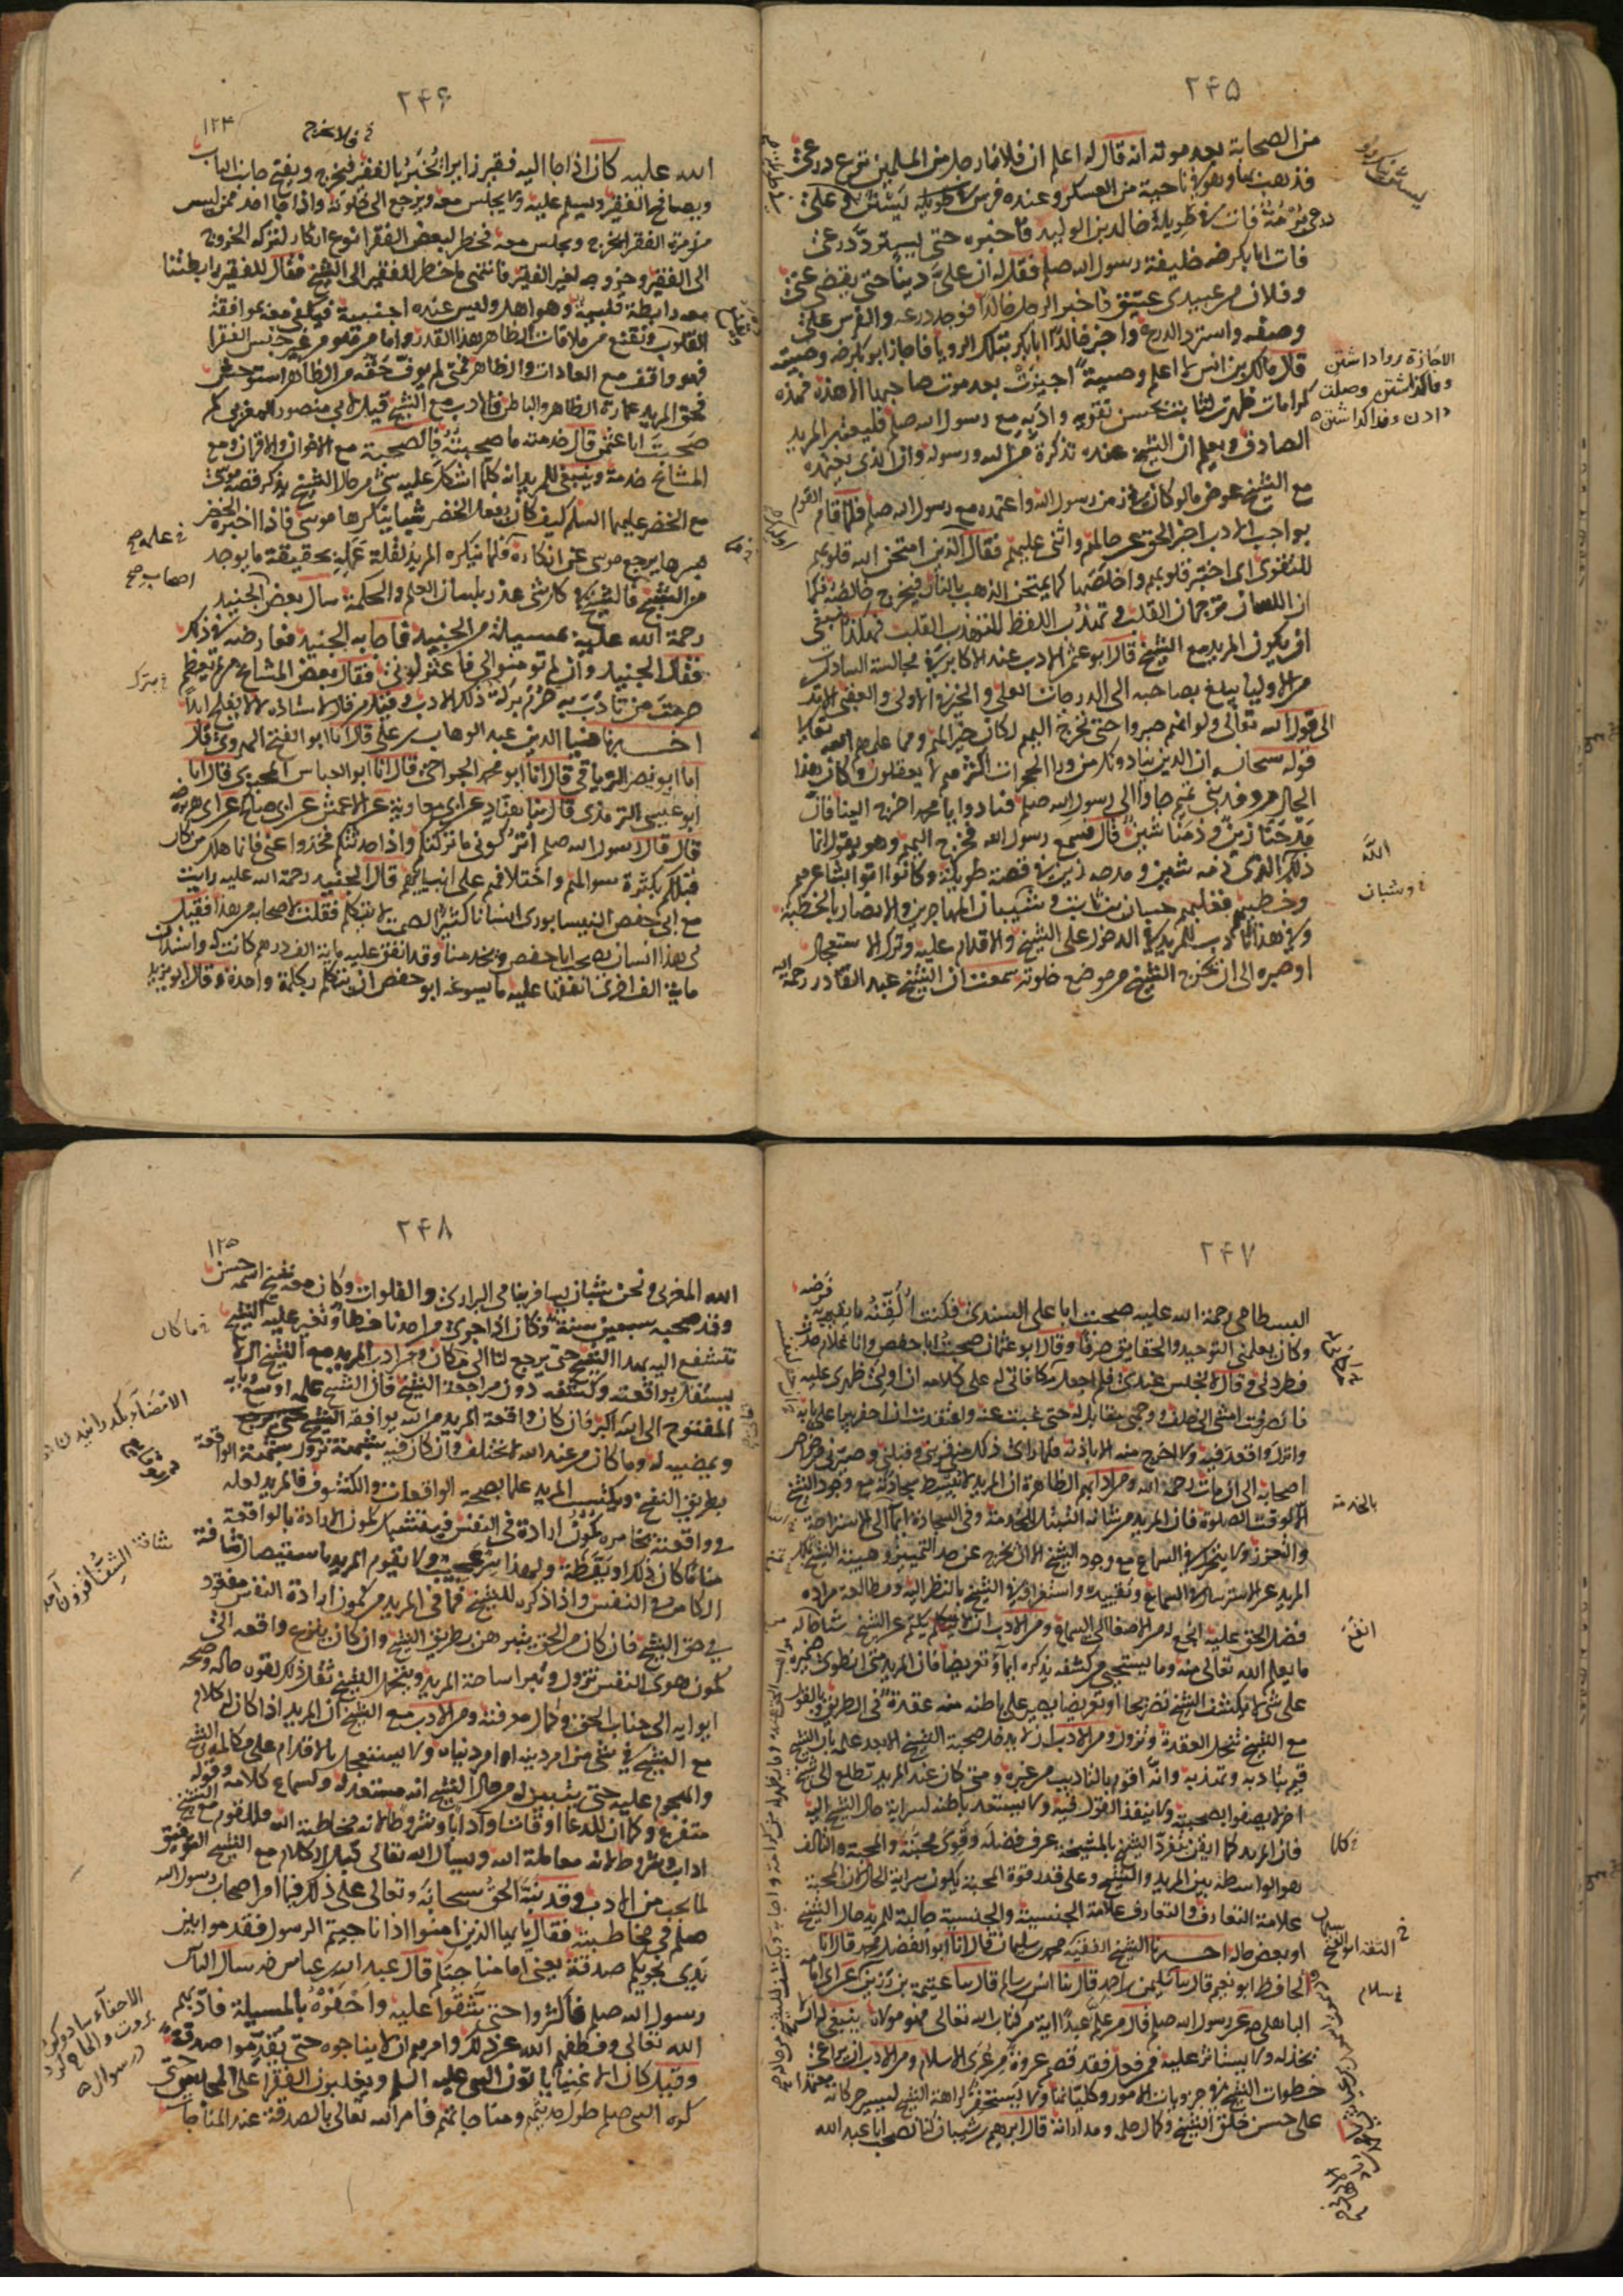 ۲۴۵
من الصحابة بعد موته انه قال له اعلم ان فلانا رجل من المسلمين نزع درعى
فذهب بها وهو فى ناحية من العسكر وعنده فرس فى طويله يستن وعلى
درعى برمة فات خالد بن الوليد فاخبره حتى يسترد درعى
فات ابا بكر رضه خليفة رسول الله صلم فقل له ان على دينا حتى يقضى عنى
وفلان من عبيدى عتيق فاخبر الرجل خالدا فوجد درعه والفرس على
وصفه واسترد الدرع واخبر خالد ابا بكر بتلك الرويا فاجاز ابو بكر رضه وصيته
قال مالك بن انس لا اعلم وصية اجيزت بعد موت صاحبها الا هذه فهذه
كرامات ظهرت لثابت بحسن تقويه وادبه مع رسول الله صلم فليعتبر المريد
الصادق ويعلم ان الشيخ عنده تذكرة من الله ورسوله وان الذى يعتمده
مع الشيخ عوض ما لو كان فى زمن رسول الله واعتمده مع رسول الله صلم فلما قام القوم
بواجب الادب اخبر الحق عن حالهم واثنى عليهم فقال الذين امتحن الله قلوبهم
للتقوى اى اختبر قلوبهم واخلصها كما يمتحن الذهب بالنار فيخرج خالصه فكما
ان اللسان ترجمان القلب وتهذب اللفظ لتهذب القلب فهكذا ينبغى
ان يكون المريد مع الشيخ قال ابو عثمن الادب عند الاكابر وفى مجالسة السادات
من الاوليا يبلغ بصاحبه الى الدرجات العلى والخير فى الاولى والعقبى الا ترى
الى قول الله تعالى ولو انهم صبروا حتى تخرج اليهم لكان خيرا لهم ومما علمهم الله تعالى
قوله سبحانه ان الذين ينادونك من ورا الحجرات اكثرهم لا يعقلون وكان هذا
الحال من وفد بنى تميم جاوا الى رسول الله صلم فنادوا يا محمد اخرج الينا فان
مدحنا زين وذمنا شين قال فسمع رسول الله فخرج اليهم وهو يقول انما
ذلكم الله الذى ذمه شين ومدحه زين فى قصة طويلة وكانوا اتوا بشاعرهم
وخطيبهم فغلبهم حسان بن ثابت وشبان المهاجرين والانصار بالخطبة
وفى هذا تاديب للمريد فى الدخول على الشيخ والاقدام عليه وترك الاستعجال
وصبره الى ان يخرج الشيخ من موضع خلوته سمعت ان الشيخ عبد القادر رحمة الله
الاجازة روا داشتن
الله
وشبان
۲۴۶
۱۲۴
فلا يخرج
الله عليه كان اذا جا اليه فقير زايرا يخبر بالفقير فيخرج ويفتح جانب الباب
ويصافح الفقير ويسلم عليه ولا يجلس معه ويرجع الى خلوته واذا جا احد ممن ليس
من زمرة الفقرا يخرج ويجلس معه فخطر لبعض الفقرا نوع انكار لتركه الخروج
الى الفقير وخروجه لغير الفقير فانتهى ما خطر للفقير الى الشيخ فقال الفقير رابطتنا
معه رابطة قلبية وهو اهل وليس عنده اجنبية فنكتفى معه بموافقة
القلوب ونقنع من ملاقات الظاهر بهذا القدر واما من هو من غير جنس الفقرا
فهو واقف مع العادات والظاهر فمتى لم يوف حقه من الظاهر استوحش
فحق المريد عمارة الظاهر والباطن فالادب مع الشيخ قيل لابى منصور المغربى كم
صحبت ابا عثمن قال خدمته ما صحبته فالصحبة مع الاخوان والاقران ومع
المشايخ خدمة وينبغى للمريد انه كلما اشكل عليه شئ من حال الشيخ يذكر قصة موسى
مع الخضر عليهما السلم كيف كان يفعل الخضر اشيا ينكرها موسى فاذا اخبره الخضر
بسرها يرجع موسى عن انكاره فما ينكره المريد لقلة علمه بحقيقة ما يوجد
من الشيخ فللشيخ فى كل شئ عذر بلسان العلم والحكمة سال بعض الجنيد
رحمة الله عليه مسيلة من الجنيد فاجابه الجنيد فعارضه فى ذلك
فقال الجنيد وان لم تومنوا لى فاعتزلون فقال بعض المشايخ من لم يعظم
حرمة من تادب به حرم بركة ذلك الادب وقيل من قال لاستاذه لا لا يفلح ابدا
اخبرنا ضيا الدين عبد الوهاب بن على قال انا ابو الفتح الهروى قال
انا ابو نصر الترياقى قال انا ابو محمد الجراحى قال انا ابو العباس المحبوبى قال انا
ابو عيسى الترمذى قال ثنا هناد عن ابى معاوية عن الاعمش عن ابى صالح عن ابى هريرة رضه
قال قال رسول الله صلم اتركونى ما تركتكم واذا حدثتكم فخذوا عنى فانما هلك من كان
قبلكم بكثرة سوالهم واختلافهم على انبيائهم قال الجنيد رحمة الله عليه رايت
مع ابى حفص النيسابورى انسانا كثير الصمت لا يتكلم فقلت لاصحابه من هذا فقيل
لى هذا انسان يصحب ابا حفص ويخدمنا وقد انفق عليه ماية الف درهم كانت له واستدان
ماية الف اخرى انفقها عليه ما يسوغه ابو حفص ان يتكلم بكلمة واحدة وقال ابو يزيد
۲۴۷
البسطامى رحمة الله عليه صحبت ابا على السندى فكنت القنه ما يقيم به فرضه
وكان يعلمنى التوحيد والحقايق صرفا وقال ابو عثمان صحبت ابا حفص وانا غلام حدث
فطردنى وقال لا تجلس عندى فلم اجعل مكافاتى له على كلامه ان اولى ظهرى عليه
فانصرفت امشى الى خلف ووجهى مقابل له حتى غبت عنه واعتقدت ان احفر بيرا على بابه
وانزل واقعد فيه ولا اخرج منه الا باذنه فلما راى ذلك منى قربنى وقبلنى وصيرنى من خواص
اصحابه الى ان مات رحمة الله ومن ادابهم الظاهرة ان المريد لا يبسط سجادته مع وجود الشيخ
الا لوقت الصلوة فان المريد من شانه التبتل للخدمة وفى السجادة ايما الى الاستراحة
والتعزز ولا يتحرك فى السماع مع وجود الشيخ الا ان يخرج عن حد التمييز وهيبة الشيخ تملك
المريد عن الاسترسال فى السماع وتقييده واستغراقه فى الشيخ بالنظر اليه ومطالعة موارده
فضل الحق عليه انجع له من الاصغا الى السماع ومن الادب ان لا يكتم عن الشيخ شيا من حاله
ما يعلم الله تعالى منه وما يستحيى من كشفه يذكره ايما وتعريضا فان المريد متى انطوى ضميره
على شئ لا يكشف الشيخ تصريحا او تعريضا يصير على باطنه منه عقدة فى الطريق وبالقول
مع الشيخ تنحل العقدة وتزول ومن الادب ان لا يدخل صحبة الشيخ الا بعد علمه بان الشيخ
قيم بتاديبه وتهذيبه وانه اقوم بالتاديب من غيره ومتى كان عند المريد تطلع الى شيخ
اخر لا يصفوا صحبته ولا ينفذ القول فيه ولا يستعد باطنه لسراية حال الشيخ اليه
فان المريد كلما ايقن تفرد الشيخ بالمشيخة عرف فضله وقوى محبته والمحبة والتالف
هو الواسطة بين المريد والشيخ وعلى قدر قوة المحبة يكون سراية الحال لان المحبة
علامة التعارف والتعارف علامة الجنسية والجنسية جالبة للمريد حال الشيخ
او بعض حاله اخبرنا الشيخ الفقيه محمد بن سليمان قال انا ابو الفضل محمد قال انا
الحافظ ابو نعيم قال ثنا سليمن بن احمد قال ثنا انس بن سالم قال ثنا عتيبة بن رزين عن ابى امامة
الباهلى عن رسول الله صلم قال من علم عبدا اية من كتاب الله تعالى فهو مولاه ينبغى له ان لا
يخذله ولا يستاثر عليه فمن فعل فقد قصم عروة من عرى الاسلام ومن الادب ان يراعى
خطرات الشيخ فى جزويات الامور وكلياتها ولا يستحقر كراهة الشيخ ليسير حركاته معتمدا
على حسن خلق الشيخ وكمال حلمه ومداراته قال ابرهيم بن شيبان كنا نصحب ابا عبد الله
بالخدمة
انفع
كلما
۲۴۸
۱۲۵
الله المغربى ونحن شبان يسافر بنا فى البرارى والفلوات وكان معه شيخ اسمه حسن
وقد صحبه سبعين سنة وكان اذا جرى من احدنا خطا وتغير عليه الشيخ
نتشفع اليه بهذا الشيخ حتى يرجع لنا الى ما كان ومن ادب المريد مع الشيخ ان لا
يستقل بواقعته وكشفه دون مراجعة الشيخ فان الشيخ علمه اوسع وبابه
المفتوح الى الله اكبر فان كان واقعة المريد من الله يوافقه الشيخ
ويمضيه له وما كان من عند الله لا يختلف وان كان فيه شبهة تزول شبهة الواقعة
بطريق الشيخ ويكتسب المريد علما بصحة الواقعات والكشوف فالمريد لعله
فى واقعته يخامره كمون ارادة فى النفس فيشتبك كمون الارادة بالواقعة
مناما كان ذلك او يقظة ولهذا سر عجيب ولا يقوم المريد باستيصال شافة
الكامن فى النفس واذا ذكره للشيخ فما فى المريد من كمون ارادة النفس مفقود
فى حق الشيخ فان كان من الحق يتبرهن بطريق الشيخ وان كان ينزع واقعه الى
كمون هوى النفس تزول وتبرا ساحة المريد ويتحمل الشيخ ثقل ذلك لقوة حاله وصحة
ايوايه الى جناب الحق وكمال معرفته ومن الادب مع الشيخ ان المريد اذا كان له كلام
مع الشيخ فى شئ من امر دينه او امر دنياه ولا يستعجل بالاقدام على مكالمة الشيخ
والهجوم عليه حتى يتبين له من حال الشيخ انه مستعد له ولسماع كلامه وقوله
متفرغ وكما ان للدعا اوقاتا وادابا وشروطا لانه مخاطبة الله فللقول مع الشيخ
اداب وشروط لانه معاملة الله ويسال الله تعالى قبل الكلام مع الشيخ التوفيق
لما يحب من الادب وقد نبه الحق سبحانه وتعالى على ذلك فيما امر اصحاب رسول الله
صلم فى مخاطبته فقال يا ايها الذين امنوا اذا ناجيتم الرسول فقدموا بين
يدى نجويكم صدقة يعنى امام مناجاتكم قال عبد الله بن عباس رضه سال الناس
رسول الله صلم فاكثروا حتى شقوا عليه واحفوه بالمسيلة فادبهم
الله تعالى وفطمهم الله عن ذلك وامرهم ان لا يناجوه حتى يقدموا صدقة
وقيل كان الاغنيا ياتون النبى عليه السلم ويغلبون الفقرا على المجالس حتى
كره النبى صلم طول حديثهم ومناجاتهم فامر الله تعالى بالصدقة عند المناجات
ما كان